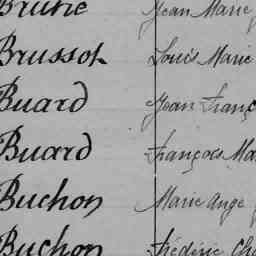 Brune Jean Marie
Brussot Louis Marie
Buard Jean Franç
Buard François Ma
Buchon Marie Ange
Buchon Frédéric Cha